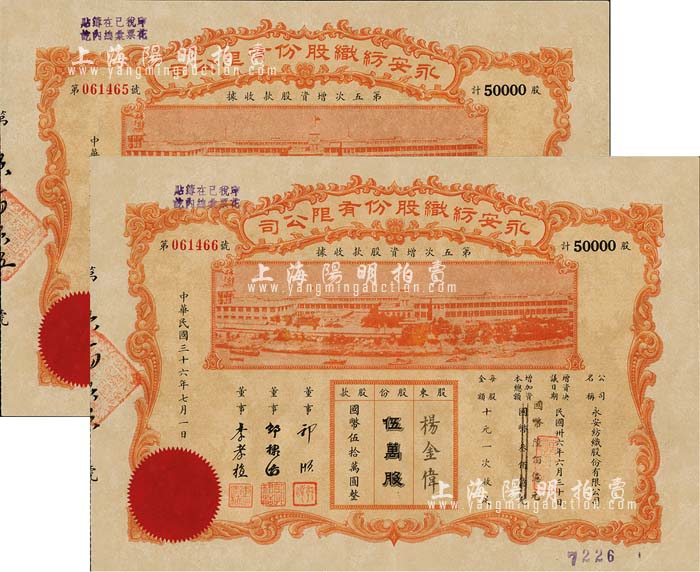 印稅已在總貼
花票彙總內訖
永安紡織股份有限公司
第五次增資股款收據
第061465號
計50000股
中華
上海陽明拍賣
www.yangmingauction.com
印稅已在總貼
花票彙總內訖
永安紡織股份有限公司
第五次增資股款收據
第061466號
計50000股
上海陽明拍賣
www.yangmingauction.com
公司名稱 永安紡織股份有限公司
增資決議日期 民國卅六年六月三十日
增加資本總額 國幣
每股金額 十元一次收足
股東 楊金偉
股份 伍萬股
股款 國幣伍拾萬圓整
董事
董事
董事 李孝植
中華民國三十六年七月一日
第
號
上海陽明拍賣
www.yangmingauction.com
7226